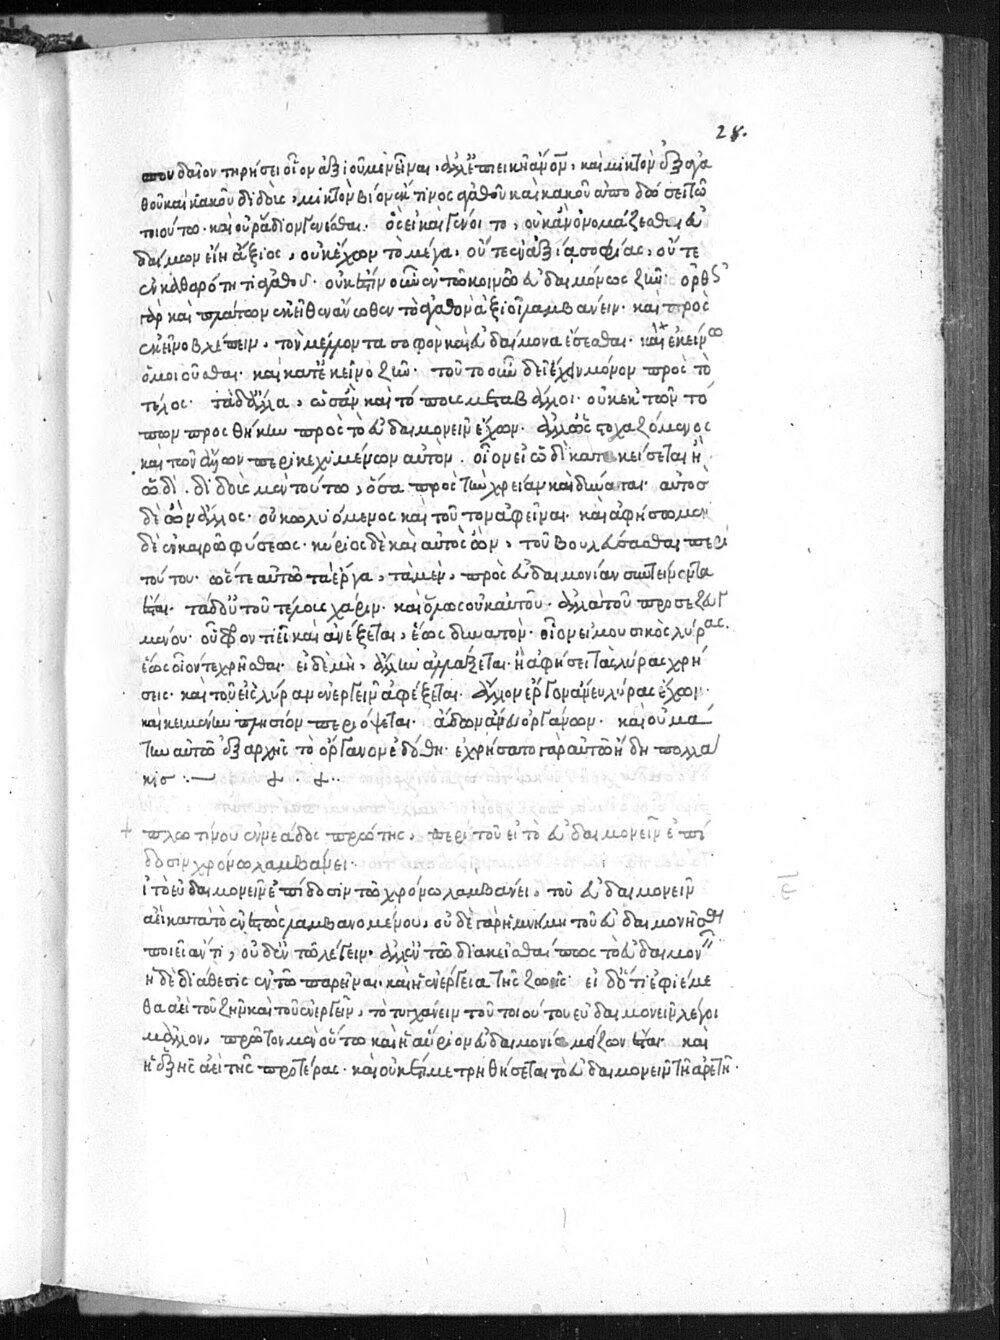 28.
σπουδαῖον τηρήσει οἷον ἀξιοῦμεν εἶναι, ἀλλ' ἐπιεικῆ ἄνθρωπον, καὶ μικτὸν ἐξ ἀγα
θοῦ καὶ κακοῦ διδοὺς, μικτὸν βίον ἔκ τινος ἀγαθοῦ καὶ κακοῦ ἀποδώσει τῶ
τοιούτω. καὶ οὐ ῥάδιον γενέσθαι. ὃς εἰ καὶ γένοιτο, οὐκ ἂν ὀνομάζεσθαι εὐ
δαίμων εἴη ἄξιος, οὐκ ἔχων τὸ μέγα, οὔτε ἐν ἀξία σοφίας, οὔτε
ἐν καθαρότητι ἀγαθοῦ. οὐκ ἔστιν οὖν ἐν τῶ κοινῶ εὐδαιμόνως ζῆν. ὀρθῶς
γὰρ καὶ πλάτων ἐκεῖθεν ἄνωθεν τὸ ἀγαθὸν ἀξιοῖ λαμβάνειν. καὶ πρὸς
ἐκεῖνο βλέπειν, τὸν μέλλοντα σοφὸν καὶ εὐδαίμονα ἔσεσθαι. καὶ ἐκείνω
ὁμοιοῦσθαι. καὶ κατ' ἐκεῖνο ζῆν. τοῦτο οὖν δεῖ ἔχειν μόνον πρὸς τὸ
τέλος. τὰ δ' ἄλλα, ὡς ἂν καὶ τόπους μεταβάλλοι. οὐκ ἐκ τῶν τό
πων προσθήκην πρὸς τὸ εὐδαιμονεῖν ἔχων. ἀλλ' ὡς στοχαζόμενος
καὶ τῶν ἄλλων περικεχυμένων αὐτὸν. οἷον εἰ ὡδὶ κατακείσεται ἢ
ὡδί. διδοὺς μὲν τούτω, ὅσα πρὸς τὴν χρείαν καὶ δύναται. αὐτὸς
δὲ ὢν ἄλλος. οὐ κωλυόμενος καὶ τοῦτον ἀφεῖναι. καὶ ἀφήσων μὲν
δὲ ἐν καιρῶ φύσεως. κύριος δὲ καὶ αὐτὸς ὢν, τοῦ βουλεύσασθαι περὶ
τούτου. ὥστε αὐτῶ τὰ ἔργα, τὰ μὲν, πρὸς εὐδαιμονίαν συντείνοντα
ἔσται. τὰ δ' οὐ τοῦ τέλους χάριν. καὶ ὅλως οὐκ αὐτοῦ. ἀλλὰ τοῦ προσεζευγ
μένου. οὗ φροντιεῖ καὶ ἀνέξεται, ἕως δυνατὸν. οἷον εἰ μουσικὸς λύρας.
ἕως οἷόν τε χρῆσθαι. εἰ δὲ μὴ, ἄλλην ἀλλάξεται. ἢ ἀφήσει τὰς λύρας χρή
σεις. καὶ τοῦ εἰς λύραν ἐνεργεῖν ἀφέξεται. ἄλλο ἔργον ἄνευ λύρας ἔχων.
καὶ κειμένην πλησίον περιόψεται. ἄδων ἄνευ ὀργάνων. καὶ οὐ μά
την αὐτῶ ἐξ ἀρχῆς τὸ ὄργανον ἐδόθη. ἐχρήσατο γὰρ αὐτῶ ἤδη πολλά
κις :— + . +..
+ πλωτίνου ἐννεάδος πρώτης, περὶ τοῦ εἰ τὸ εὐδαιμονεῖν ἐπί
δοσιν χρόνω λαμβάνει.
ἰ τὸ εὐδαιμονεῖν ἐπίδοσιν τῶ χρόνω λαμβάνει, τοῦ εὐδαιμονεῖν
ἀεὶ κατὰ τὸ ἐνεστὼς λαμβανομένου, οὐδὲ γὰρ ἡ μνήμη τοῦ εὐδαιμονῆσαι
ποιεῖ ἄν τι, οὐδ' ἐν τῶ λέγειν. ἀλλ' ἐν τῶ διακεῖσθαί πως τὸ εὐδαιμονεῖν
ἡ δὲ διάθεσις ἐν τῶ παρεῖναι. καὶ ἡ ἐνέργεια τῆς ζωῆς. εἰ δ' ὅτι ἐφιέμε
θα ἀεὶ τοῦ ζῆν καὶ τοῦ ἐνεργεῖν, τὸ τυγχάνειν τοῦ τοιούτου εὐδαιμονεῖν λέγοι
μᾶλλον, πρῶτον μὲν οὕτω καὶ ἡ αὔριον εὐδαιμονία μείζων ἔσται. καὶ
ἡ ἑξῆς ἀεὶ τῆς προτέρας. καὶ οὐκέτι μετρηθήσεται τὸ εὐδαιμονεῖν τῆ ἀρετῆ.